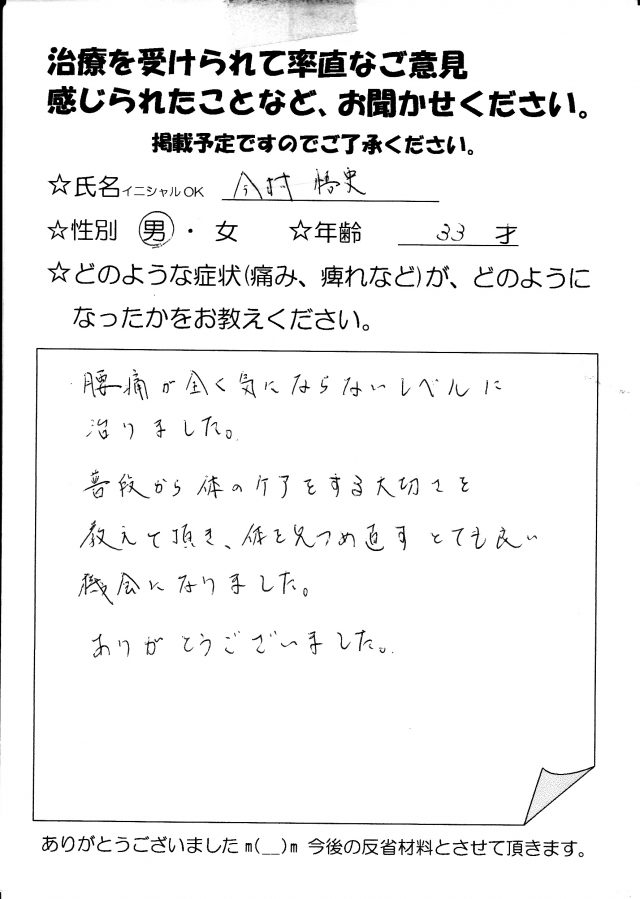 治療を受けられて率直なご意見
感じられたことなど、お聞かせください。
掲載予定ですのでご了承ください。
☆氏名イニシャルOK 今村 悟史
☆性別 男・女 ☆年齢 33 才
☆どのような症状(痛み、痺れなど)が、どのように
なったかをお教えください。
腰痛が全く気にならないレベルに
治りました。
普段から体のケアをする大切さを
教えて頂き、体を見つめ直すとても良い
機会になりました。
ありがとうございました。
ありがとうございましたm(__)m 今後の反省材料とさせて頂きます。